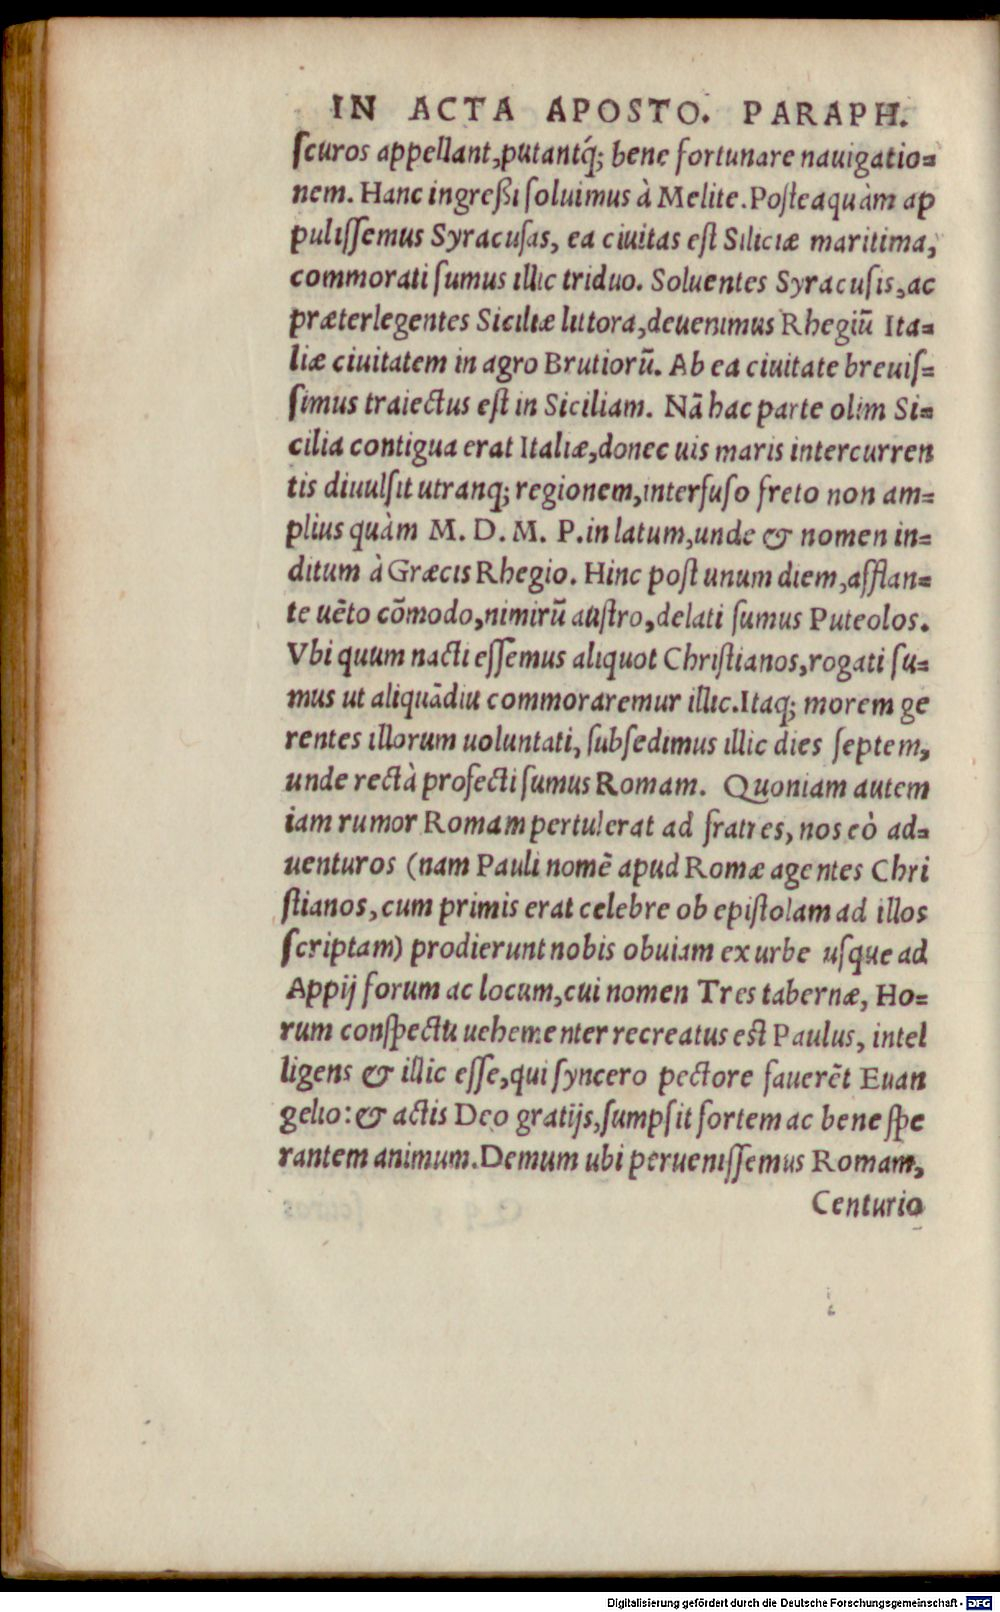 IN ACTA APOSTO. PARAPH.
ſcuros appellant, putantq́; bene fortunare nauigatio=
nem. Hanc ingreßi ſoluimus à Melite. Poſteaquàm ap
puliſſemus Syracuſas, ea ciuitas eſt Siliciæ maritima,
commorati ſumus illic triduo. Soluentes Syracuſis, ac
præterlegentes Siciliæ littora, deuenimus Rhegiũ Ita=
liæ ciuitatem in agro Brutiorũ. Ab ea ciuitate breuiſ=
ſimus traiectus eſt in Siciliam. Nã hac parte olim Si=
cilia contigua erat Italiæ, donec uis maris intercurren
tis diuulſit utranq; regionem, interfuſo freto non am=
plius quàm M. D. M. P. in latum, unde & nomen in=
ditum à Græcis Rhegio. Hinc poſt unum diem, afflan=
te uẽto cõmodo, nimirũ auſtro, delati ſumus Puteolos.
Vbi quum nacti eſſemus aliquot Chriſtianos, rogati ſu=
mus ut aliquãdiu commoraremur illic. Itaq; morem ge
rentes illorum uoluntati, ſubſedimus illic dies ſeptem,
unde rectà profecti ſumus Romam. Quoniam autem
iam rumor Romam pertulerat ad fratres, nos eò ad=
uenturos (nam Pauli nomẽ apud Romæ agentes Chri
ſtianos, cum primis erat celebre ob epiſtolam ad illos
ſcriptam) prodierunt nobis obuiam ex urbe uſque ad
Appij forum ac locum, cui nomen Tres tabernæ, Ho=
rum conſpectu uehementer recreatus eſt Paulus, intel
ligens & illic eſſe, qui ſyncero pectore fauerẽt Euan
gelio: & actis Deo gratijs, ſumpſit fortem ac bene ſpe
rantem animum. Demum ubi perueniſſemus Romam,
Centurio
Digitalisierung gefördert durch die Deutsche Forschungsgemeinschaft - DFG